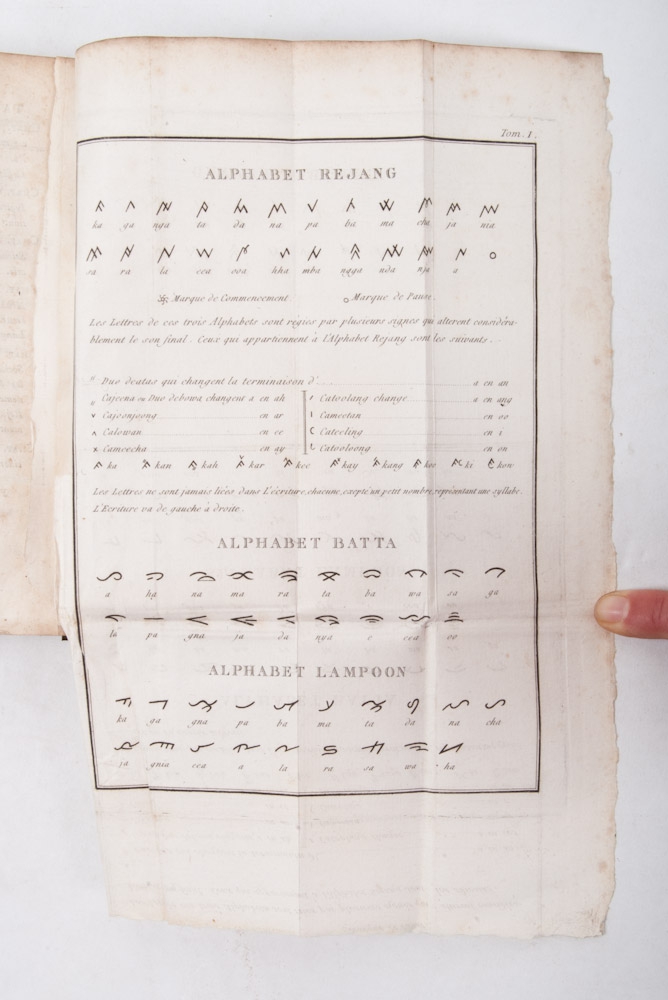 Tom. I.
ALPHABET REJANG
ka ga nga ta da na pa ba ma cha ja nia
sa ra la cea ooa hha mba ngga nda nja a
Marque de Commencement. Marque de Pause.
Les Lettres de ces trois Alphabets sont régies par plusieurs signes qui alterent considéra-
blement le son final. Ceux qui appartiennent à l'Alphabet Rejang sont les suivants.
Duo deatas qui changent la terminaison d' a en an
Cajeena ou Duo debowa changent a en ah
Catoolang change a en ang
Cajoonjoong en ar
Cameetan en oo
Calowan en ee
Cateeling en i
Cameecha en ay
Catooloong en on
ka kan kah kar kee kay kang koo ki kon
Les Lettres ne sont jamais liées dans L'écriture, chacune, exepté un petit nombre, représentant une syllabe.
L'Ecriture va de gauche à droite.
ALPHABET BATTA
a ha na ma ra ta ba wa sa ga
la pa gna ja da nya e eea oo
ALPHABET LAMPOON
ka ga gna pa ba ma ta da na cha
ja gnia eea a la ra sa wa ha